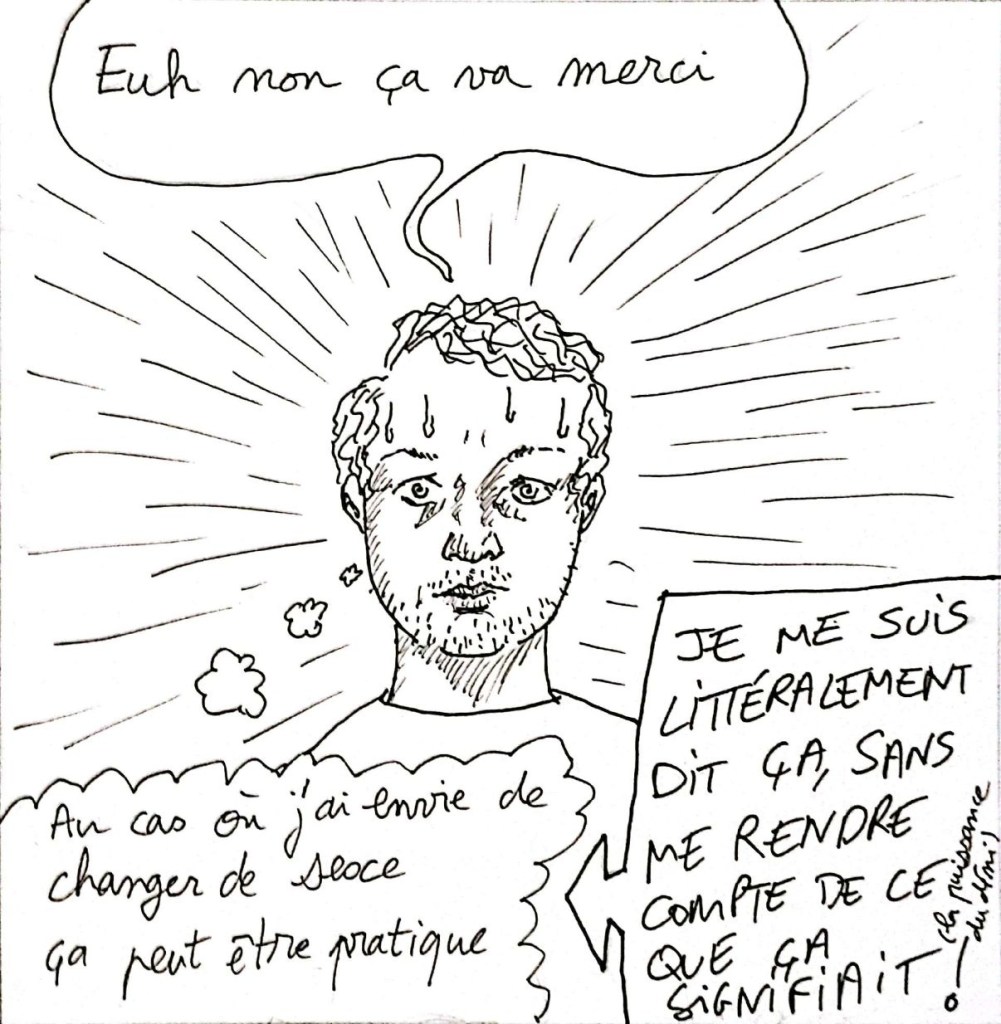 Euh non ça va merci
Au cas où j'ai envie de
changer de sexe
ça peut être pratique
JE ME SUIS
LITTÉRALEMENT
DIT ÇA, SANS
ME RENDRE
COMPTE DE CE
QUE ÇA
SIGNIFIAIT !
(la puissance
du déni)